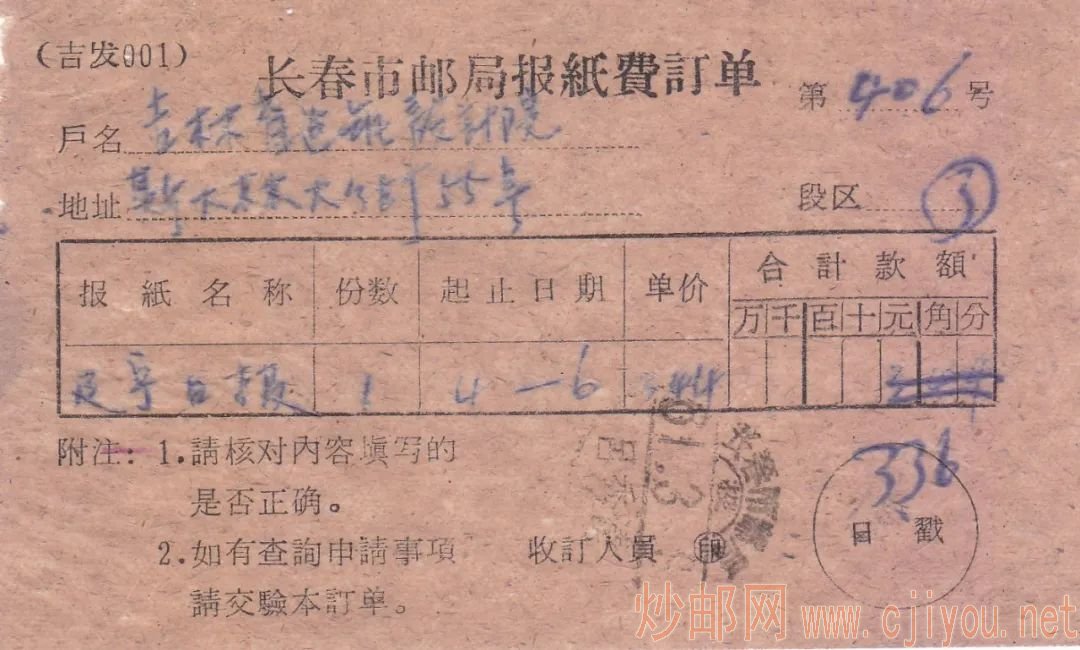 (吉发001)
长春市邮局报紙費訂单
第 406 号
戶名 吉林省
地址 斯大林大街55号
段区 ③
报紙名称 份数 起止日期 单价 合計款額
万 千 百 十 元 角 分
辽宁日報 1 4—6
附注: 1.請核对內容填写的
是否正确。
336
日戳
2.如有查詢申請事項
收訂人員 ㊞
請交驗本訂单。
炒邮网 www.cjiyou.net